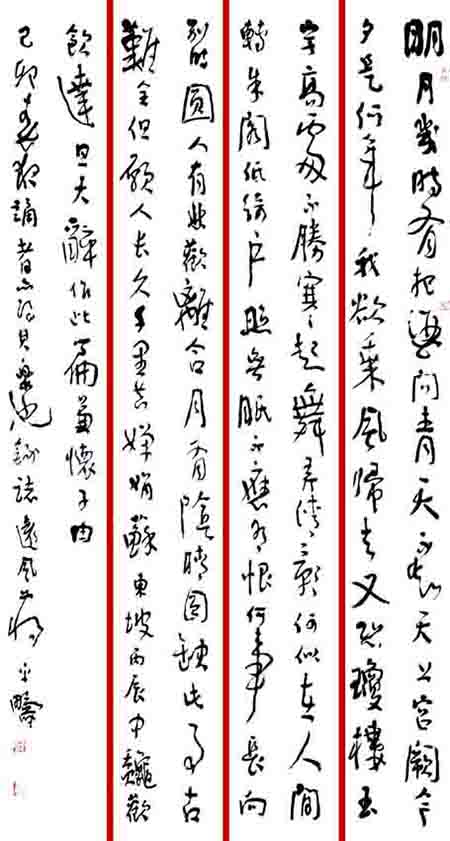 明月幾時有把酒問青天不知天上宮闕今
夕是何年我欲乘風歸去又恐瓊樓玉
宇高處不勝寒起舞弄清影何似在人間
轉朱閣低綺戶照無眠不應有恨何事長向
別時圓人有悲歡離合月有陰晴圓缺此事古
難全但願人長久千里共嬋娟蘇東坡丙辰中龝歡
飲達旦大醉作此篇兼懷子由
己卯春